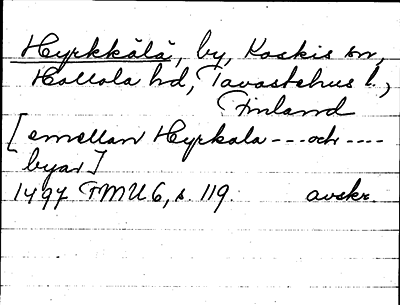 Hyrkkälä, by, Koskis sn,
Hollola hd, Tavastehus l.,
Finland
[emellan Hyrkala --- och ----
byar]
1497 FMU 6, s. 119. avskr.